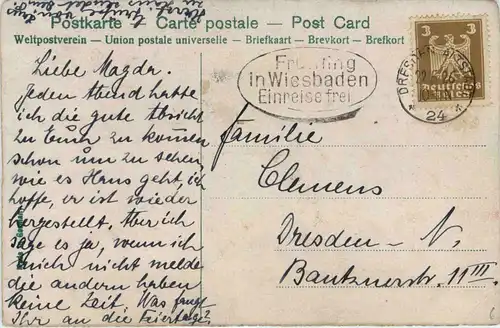 Postkarte – Carte postale – Post Card
Weltpostverein – Union postale universelle – Briefkaart – Brevkort – Brefkort
Frühling
in Wiesbaden
Einreise frei
DRESDEN-ALTST.
* 24 *
3 3
Deutsches Reich
Liebe Magda.
Jeden Abend hatte
ich die gute Absicht
zu Euch zu kommen
schon um zu sehen
wie es Hans geht, ich
hoffe, er ist wieder
hergestellt. Aber ich
sage es ja, wenn ich
mich nicht melde
die andern haben
keine Zeit. Was fangt
Ihr an die Feiertage?
Familie
Clemens
Dresden – N.
Bautznerstr. 11 III.